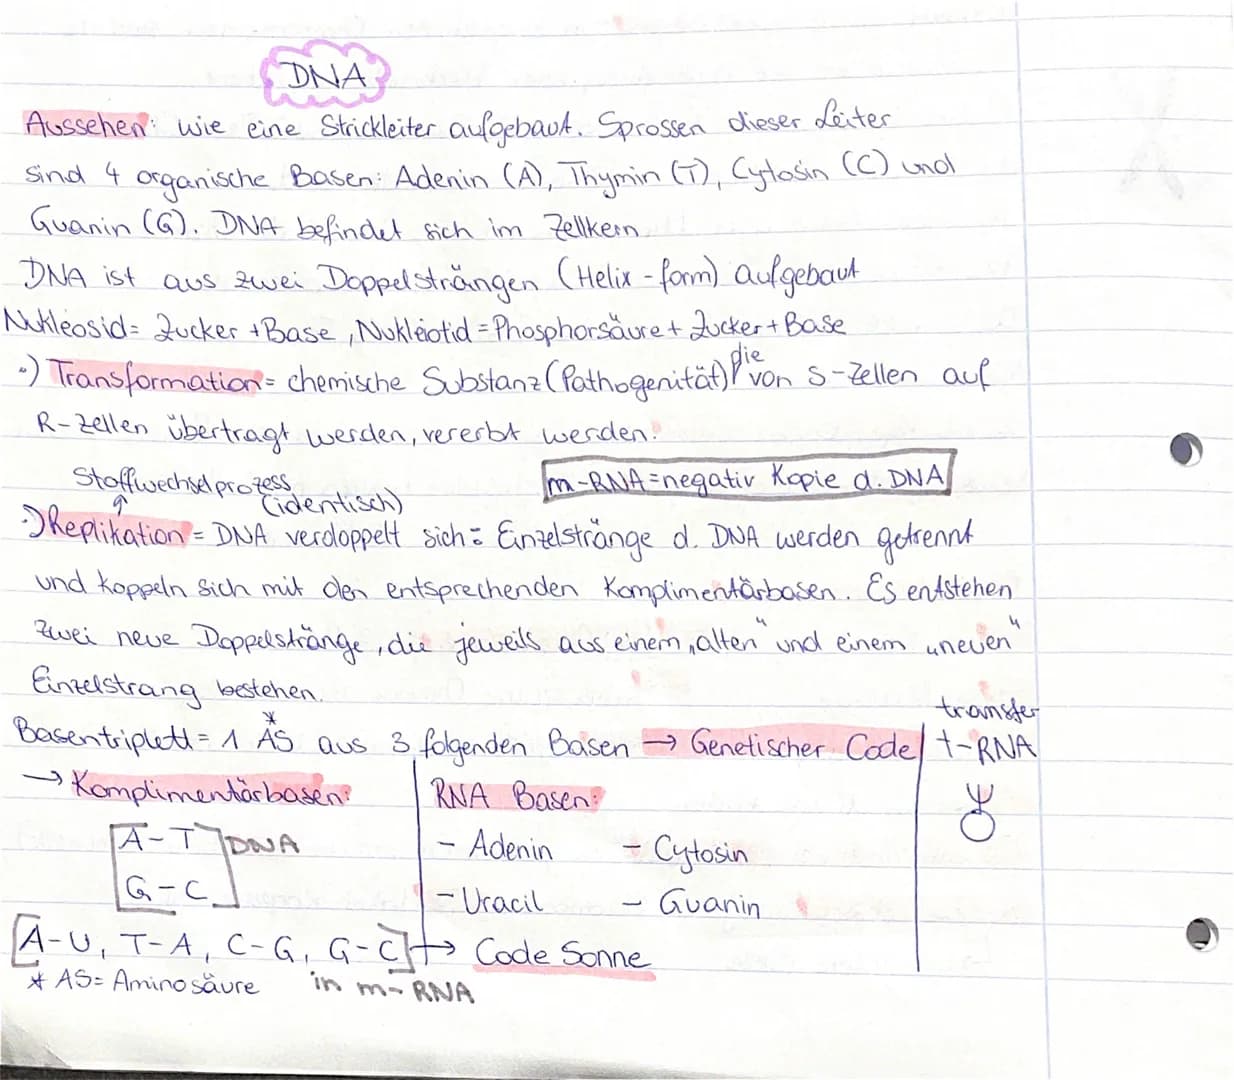 DNA
Aussehen: wie eine Strickleiter aufgebaut. Sprossen dieser Leiter
sind 4 organische Basen: Adenin (A), Thymin (T), Cytosin (C) und
Guanin (G). DNA befindet sich im Zellkern.
DNA ist aus zwei Doppelsträngen (Helix-form) aufgebaut
Nukleosid= Zucker +Base, Nukleotid = Phosphorsäure + Zucker + Base
•) Transformation= chemische Substanz (Pathogenität) die von S-Zellen auf
R-Zellen übertragt werden, vererbt werden.
Stoffwechselprozess
m-RNA=negativ Kopie d. DNA
(identisch)
•) Replikation = DNA verdoppelt sich: Einzelstränge d. DNA werden getrennt
und koppeln sich mit den entsprechenden Komplimentärbasen. Es entstehen
zwei neue Doppelstränge, die jeweils aus einem „alten" und einem „neuen"
Einzelstrang bestehen.
Basentriplett = 1 AS* aus 3 folgenden Basen → Genetischer Code
transfer
t-RNA
→ Komplimentärbasen:
RNA Basen:
A-T DNA
G-C
- Adenin - Cytosin
- Uracil - Guanin
[A-U, T-A, C-G, G-C] → Code Sonne
* AS= Aminosäure in m-RNA